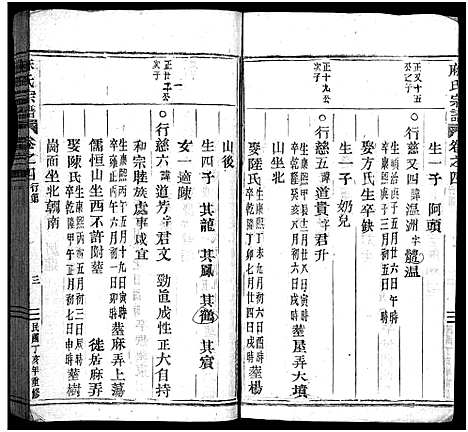 麻氏宗譜 卷之四 三
正又十五公次子
生一子 阿頭
○行慈又四諱溫洲字
龍溫
生明治
五月廿六日午時
卒
六月廿八日午時
娶方氏生卒缺
生一子 奶兒
正十九公次子
○行慈五諱道貴字君升
生康熙
八月初六日
時
卒乾隆癸亥年十月初六日寅時塟屋弄大墳
山坐北
娶陸氏
生康熙甲午年三月初三日戌時
卒乾隆
八月廿四日戌時塟楊
山後
生四子 其龍 其鳳 其鶴 其賓
女一適陳
正廿二公次子
○行慈六諱道芳字君文 勁直成性正大自持
和宗睦族處事咸宜
生康熙丙
年五月十九日寅時
卒乾隆丁
年七月十二日寅時塟麻弄上蕩
儒恒山坐西不許附塟 徙居麻弄
娶陳氏
生康熙
五月初三日
時
卒乾隆
正月初七日申時塟樹
崗面坐北朝南
麻氏宗譜 卷之四 行第 三 民國丁亥年重修